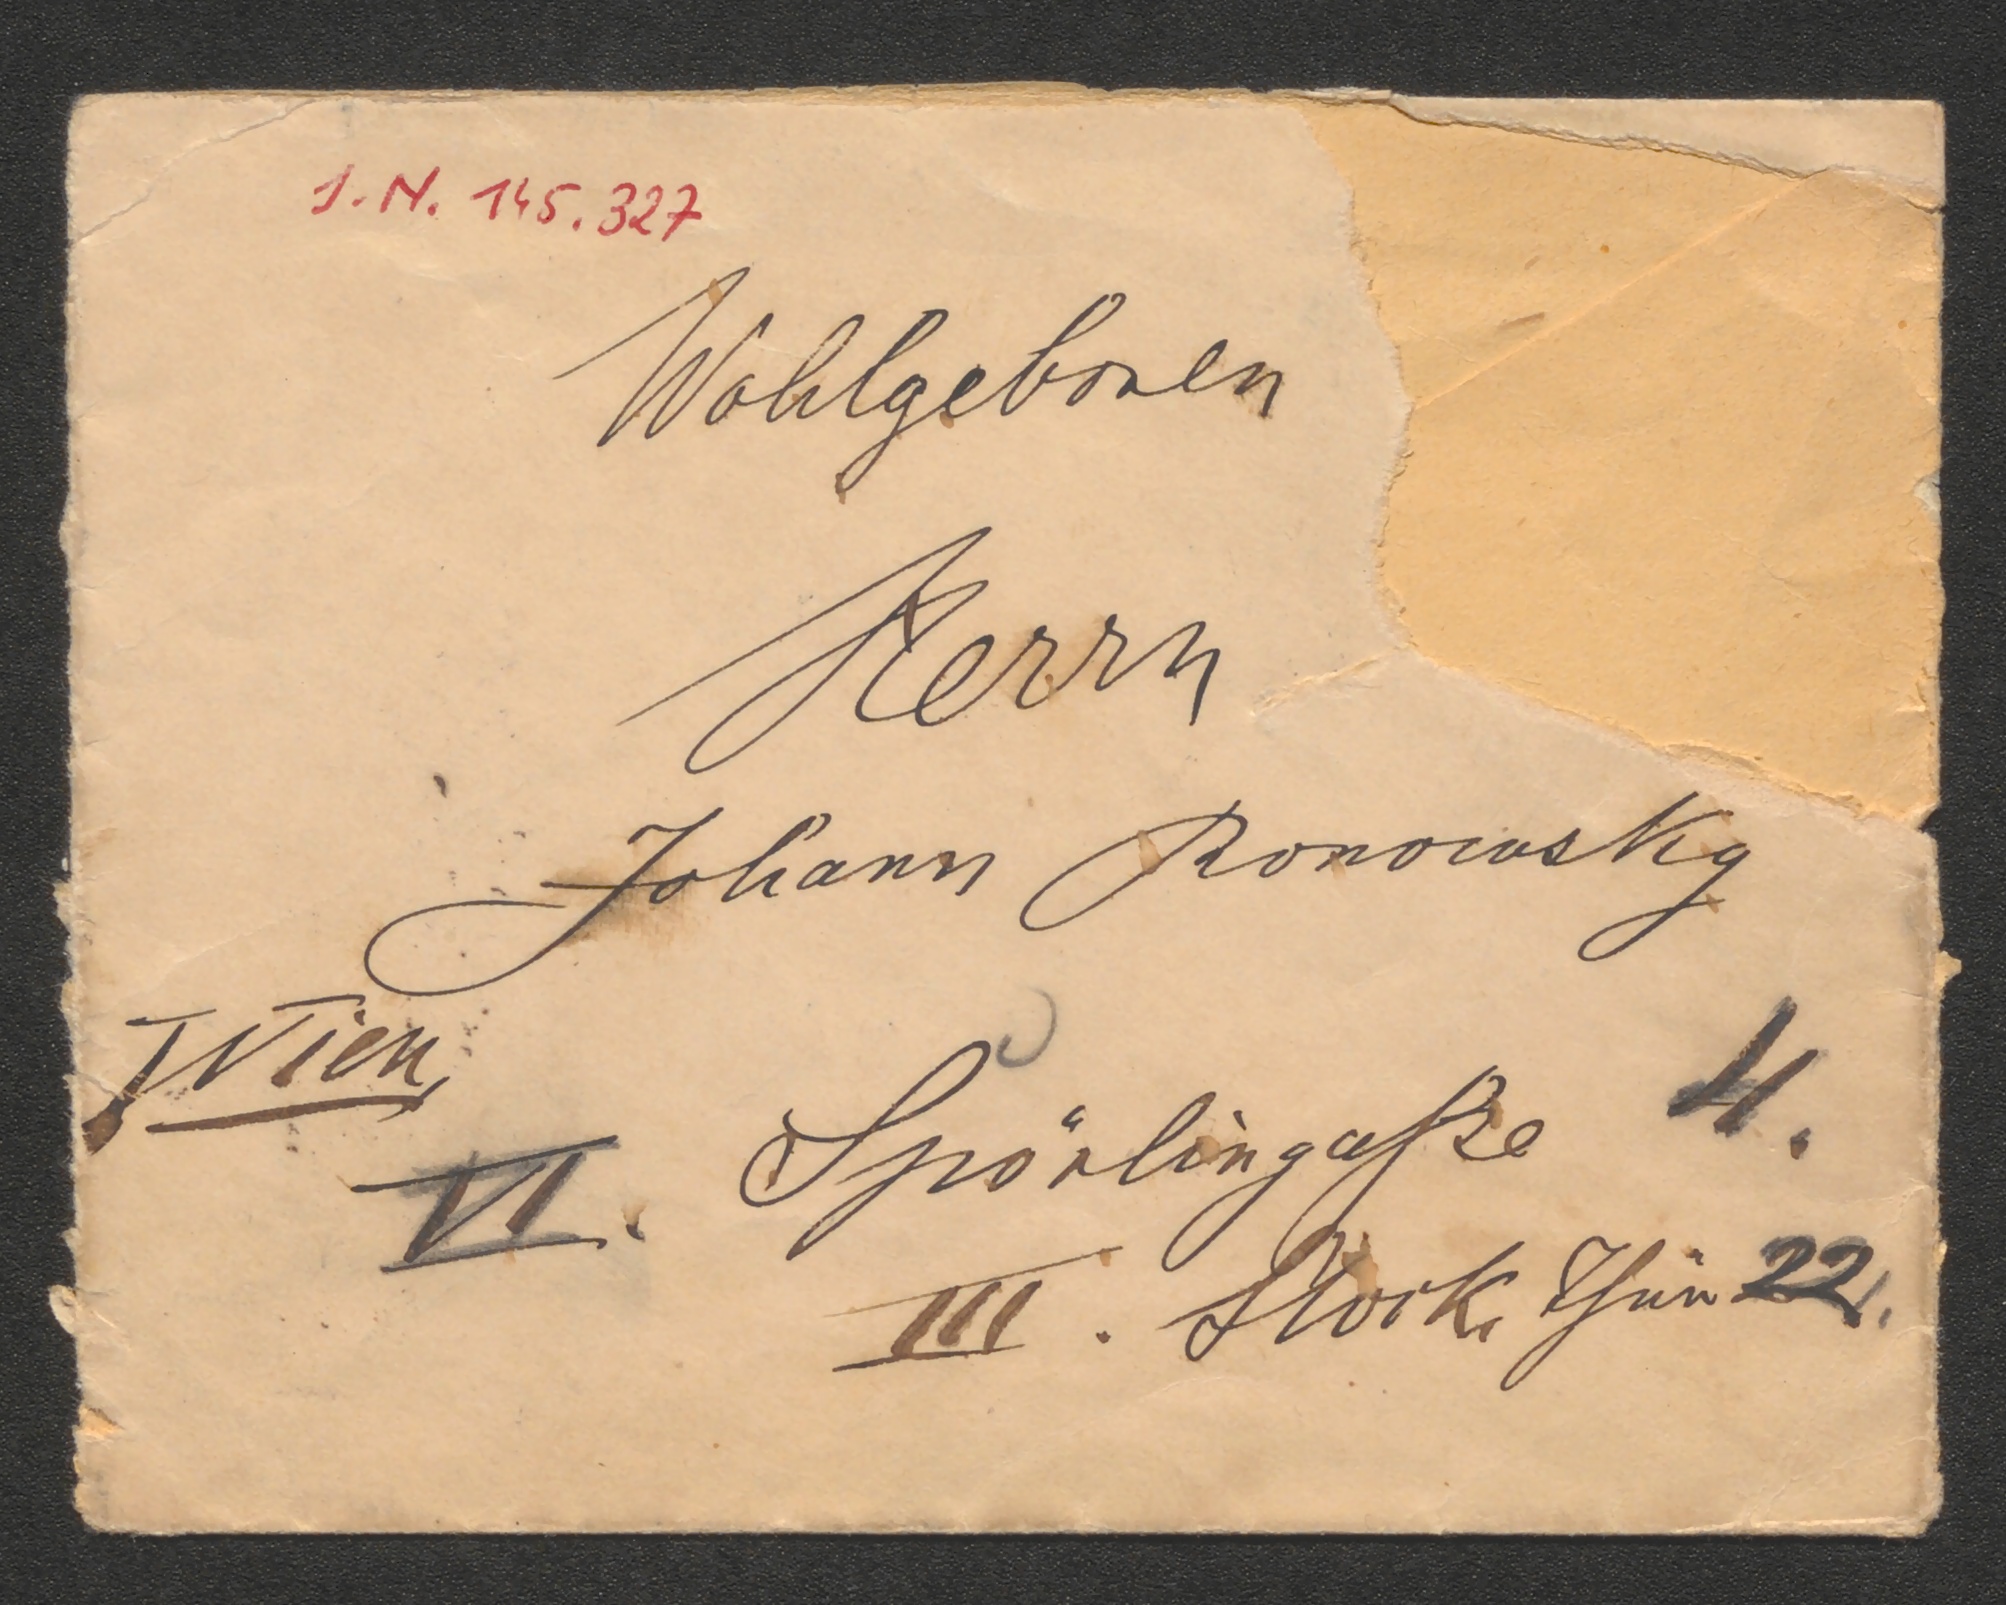 I.N. 145.327
Wohlgeboren
Herrn
Johann Ronowsky
Wien,
VI. Spörlingaße 4.
III. Stock, Thür 22.